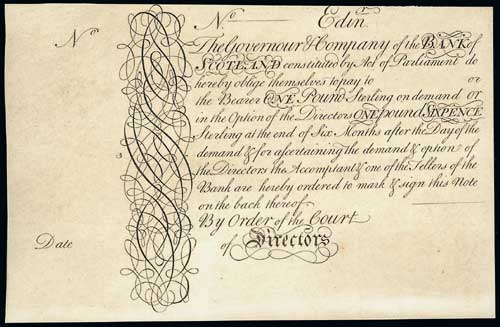 No
No Edinr.
The Governour & Company of the BANK of
SCOTLAND constituted by Act of Parliament do
hereby oblige themselves to pay to or
the Bearer ONE Pound Sterling on demand or
in the Option of the Directors ONE pound SIXPENCE
Sterling at the end of Six Months after the Day of the
demand & for ascertaining the demand & option of
the Directors the Accomptant & one of the Tellers of the
Bank are hereby ordered to mark & sign this Note
on the back thereof
By Order of the Court
of Directors
Date